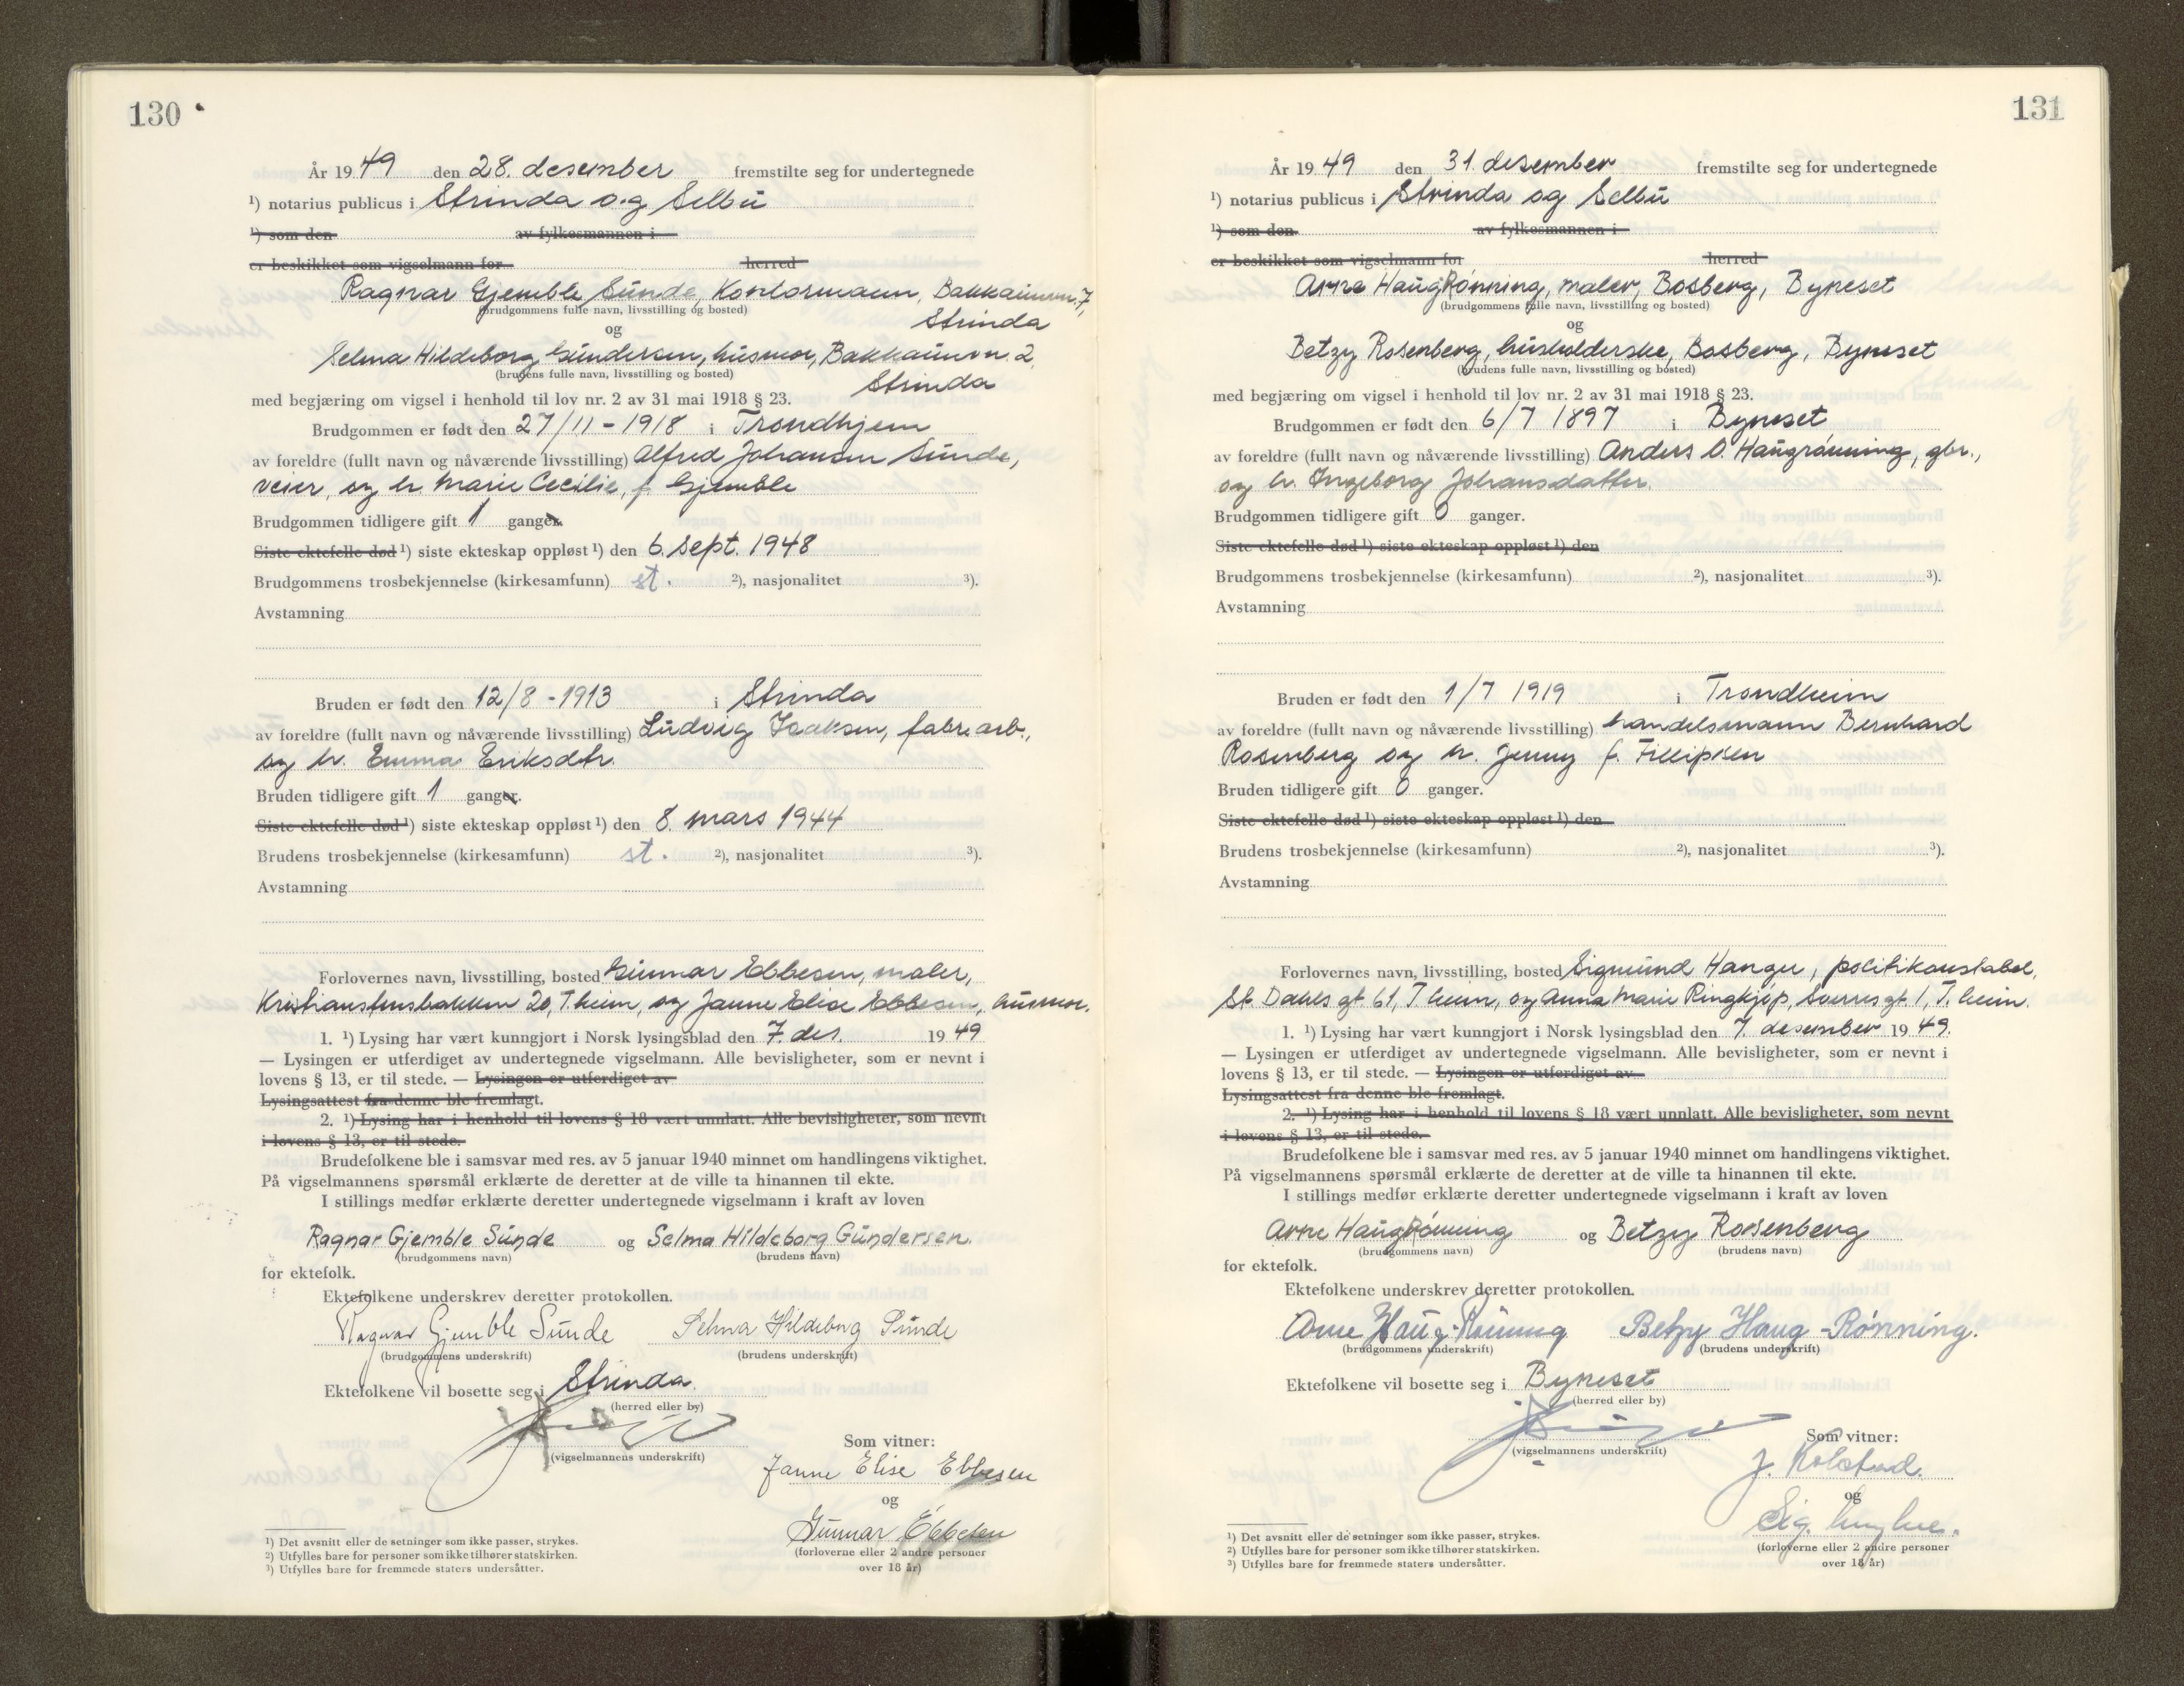 130
År 1949 den 28. desember fremstilte seg for undertegnede
¹) notarius publicus i Strinda og Selbu
¹) som den av fylkesmannen i
er beskikket som vigselmann for herred
Ragnar Gjemble Sunde, Kontormann, Bakkaunvn. 7,
(brudgommens fulle navn, livsstilling og bosted)
Strinda
og
Selma Hildeborg Gundersen, husmor, Bakkaunvn. 2,
(brudens fulle navn, livsstilling og bosted)
Strinda
med begjæring om vigsel i henhold til lov nr. 2 av 31 mai 1918 § 23.
Brudgommen er født den 27/11 - 1918 i Trondhjem
av foreldre (fullt navn og nåværende livsstilling) Alfred Johansen Sunde,
veier, og h. Marie Cecilie, f. Gjemble
Brudgommen tidligere gift 1 ganger.
Siste ektefelle død ¹) siste ekteskap oppløst ¹) den 6. sept. 1948
Brudgommens trosbekjennelse (kirkesamfunn) st. ²), nasjonalitet ³).
Avstamning
Bruden er født den 12/8 - 1913 i Strinda
av foreldre (fullt navn og nåværende livsstilling) Ludvig Isaksen, fabr.arb.,
og h. Emma Eriksdtr.
Bruden tidligere gift 1 ganger.
Siste ektefelle død ¹) siste ekteskap oppløst ¹) den 8. mars 1944
Brudens trosbekjennelse (kirkesamfunn) st. ²), nasjonalitet ³).
Avstamning
Forlovernes navn, livsstilling, bosted Gunnar Ebbesen, maler,
Kristianstensbakken 20, T.heim, og Janne Elise Ebbesen, husmor.
1. ¹) Lysing har vært kunngjort i Norsk lysingsblad den 7. des. 1949
— Lysingen er utferdiget av undertegnede vigselmann. Alle bevisligheter, som er nevnt i
lovens § 13, er til stede. — Lysingen er utferdiget av
Lysingsattest fra denne ble fremlagt.
2. ¹) Lysing har i henhold til lovens § 18 vært unnlatt. Alle bevisligheter, som nevnt
i lovens § 13, er til stede.
Brudefolkene ble i samsvar med res. av 5 januar 1940 minnet om handlingens viktighet.
På vigselmannens spørsmål erklærte de deretter at de ville ta hinannen til ekte.
I stillings medfør erklærte deretter undertegnede vigselmann i kraft av loven
Ragnar Gjemble Sunde og Selma Hildeborg Gundersen.
(brudgommens navn) (brudens navn)
for ektefolk.
Ektefolkene underskrev deretter protokollen.
Ragnar Gjemble Sunde Selma Hildeborg Sunde
(brudgommens underskrift) (brudens underskrift)
Ektefolkene vil bosette seg i Strinda.
(herred eller by)
(vigselmannens underskrift)
Som vitner:
Janne Elise Ebbesen
og
Gunnar Ebbesen
(forloverne eller 2 andre personer
over 18 år)
¹) Det avsnitt eller de setninger som ikke passer, strykes.
²) Utfylles bare for personer som ikke tilhører statskirken.
³) Utfylles bare for fremmede staters undersåtter.
131
År 1949 den 31. desember fremstilte seg for undertegnede
¹) notarius publicus i Strinda og Selbu
¹) som den av fylkesmannen i
er beskikket som vigselmann for herred
Arne Haug Rønning, maler, Bosberg, Byneset
(brudgommens fulle navn, livsstilling og bosted)
og
Betzy Rosenberg, husholderske, Bosberg, Byneset
(brudens fulle navn, livsstilling og bosted)
med begjæring om vigsel i henhold til lov nr. 2 av 31 mai 1918 § 23.
Brudgommen er født den 6/7 1897 i Byneset
av foreldre (fullt navn og nåværende livsstilling) Anders O. Haugrønning, gbr.,
og h. Ingeborg Johansdatter.
Brudgommen tidligere gift 0 ganger.
Siste ektefelle død ¹) siste ekteskap oppløst ¹) den
Brudgommens trosbekjennelse (kirkesamfunn) ²), nasjonalitet ³).
Avstamning
Bruden er født den 1/7 1919 i Trondheim
av foreldre (fullt navn og nåværende livsstilling) handelsmann Bernhard
Rosenberg og h. Jenny f. Fillipsen
Bruden tidligere gift 0 ganger.
Siste ektefelle død ¹) siste ekteskap oppløst ¹) den
Brudens trosbekjennelse (kirkesamfunn) ²), nasjonalitet ³).
Avstamning
Forlovernes navn, livsstilling, bosted Sigmund Hanger, politikonstabel,
St. Dahls gt. 61, T.heim, og Anna Marie Ringkjøp, Sverres gt. 1, T.heim.
1. ¹) Lysing har vært kunngjort i Norsk lysingsblad den 7. desember 1949.
— Lysingen er utferdiget av undertegnede vigselmann. Alle bevisligheter, som er nevnt i
lovens § 13, er til stede. — Lysingen er utferdiget av
Lysingsattest fra denne ble fremlagt.
2. ¹) Lysing har i henhold til lovens § 18 vært unnlatt. Alle bevisligheter, som nevnt
i lovens § 13, er til stede.
Brudefolkene ble i samsvar med res. av 5 januar 1940 minnet om handlingens viktighet.
På vigselmannens spørsmål erklærte de deretter at de ville ta hinannen til ekte.
I stillings medfør erklærte deretter undertegnede vigselmann i kraft av loven
Arne Haug Rønning og Betzy Rosenberg
(brudgommens navn) (brudens navn)
for ektefolk.
Ektefolkene underskrev deretter protokollen.
Arne Haug-Rønning Betzy Haug-Rønning.
(brudgommens underskrift) (brudens underskrift)
Ektefolkene vil bosette seg i Byneset
(herred eller by)
(vigselmannens underskrift)
Som vitner:
J. Kolstad.
og
Sig.
(forloverne eller 2 andre personer
over 18 år)
¹) Det avsnitt eller de setninger som ikke passer, strykes.
²) Utfylles bare for personer som ikke tilhører statskirken.
³) Utfylles bare for fremmede staters undersåtter.